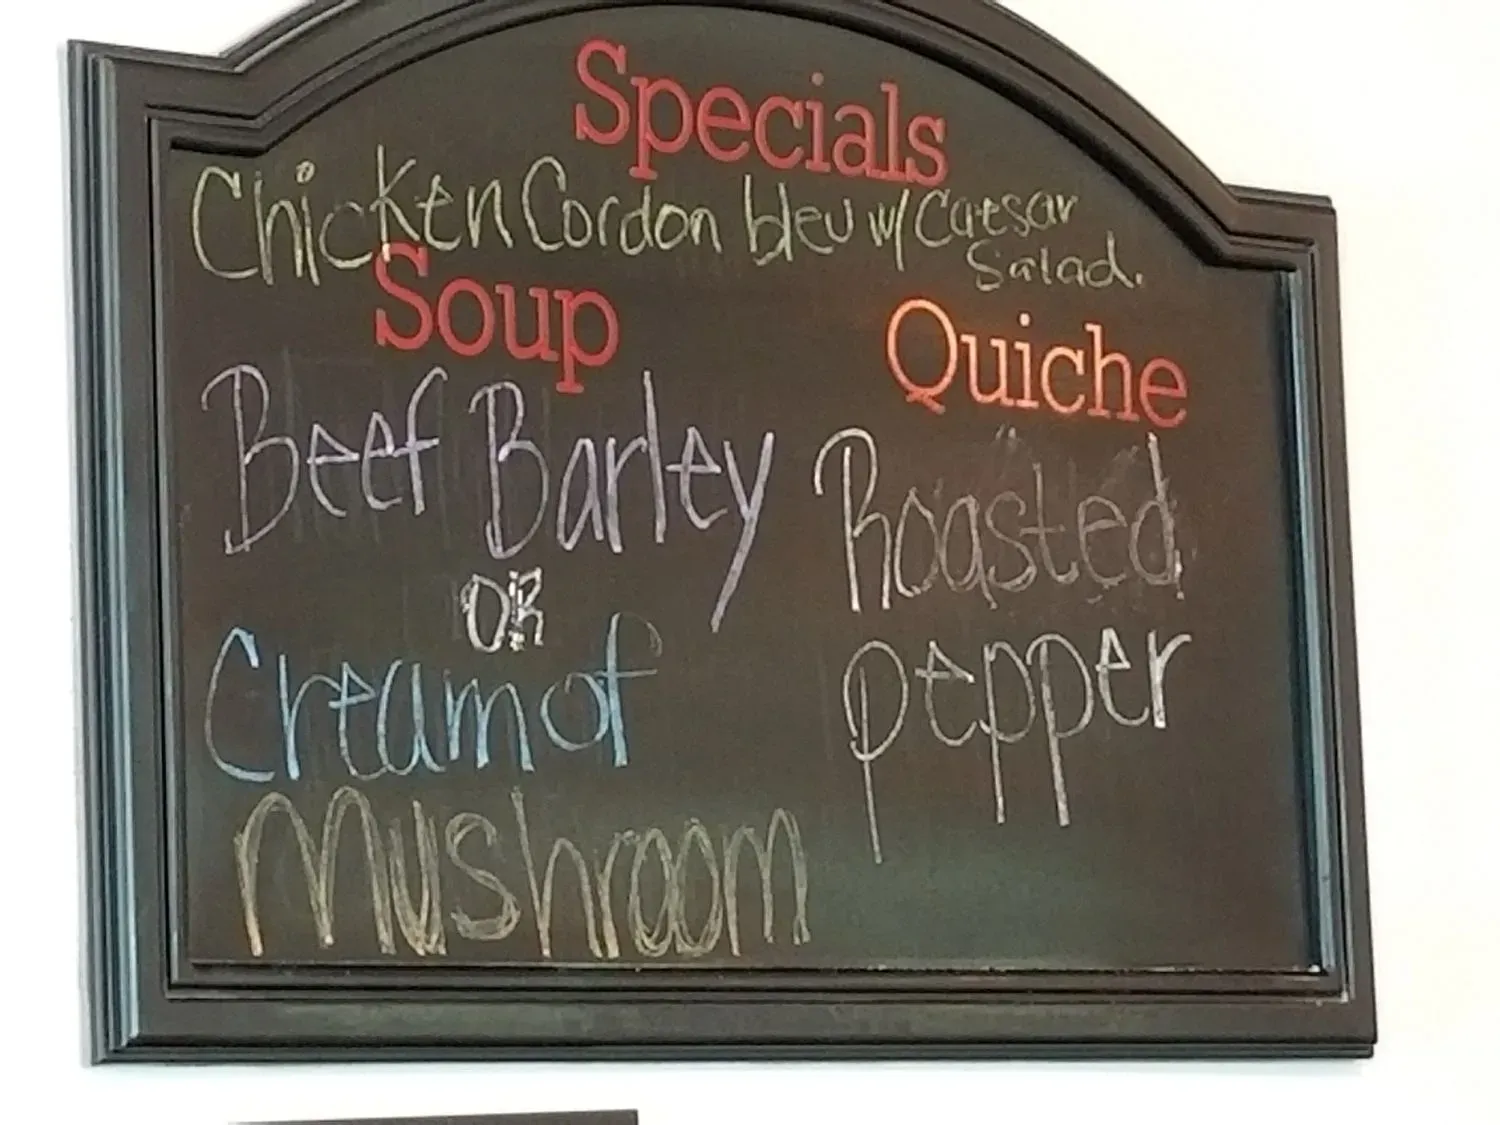 Specials
Chicken Cordon bleu w/ Caesar
Salad.
Soup
Beef Barley
OR
Cream of
Mushroom
Quiche
Roasted
pepper